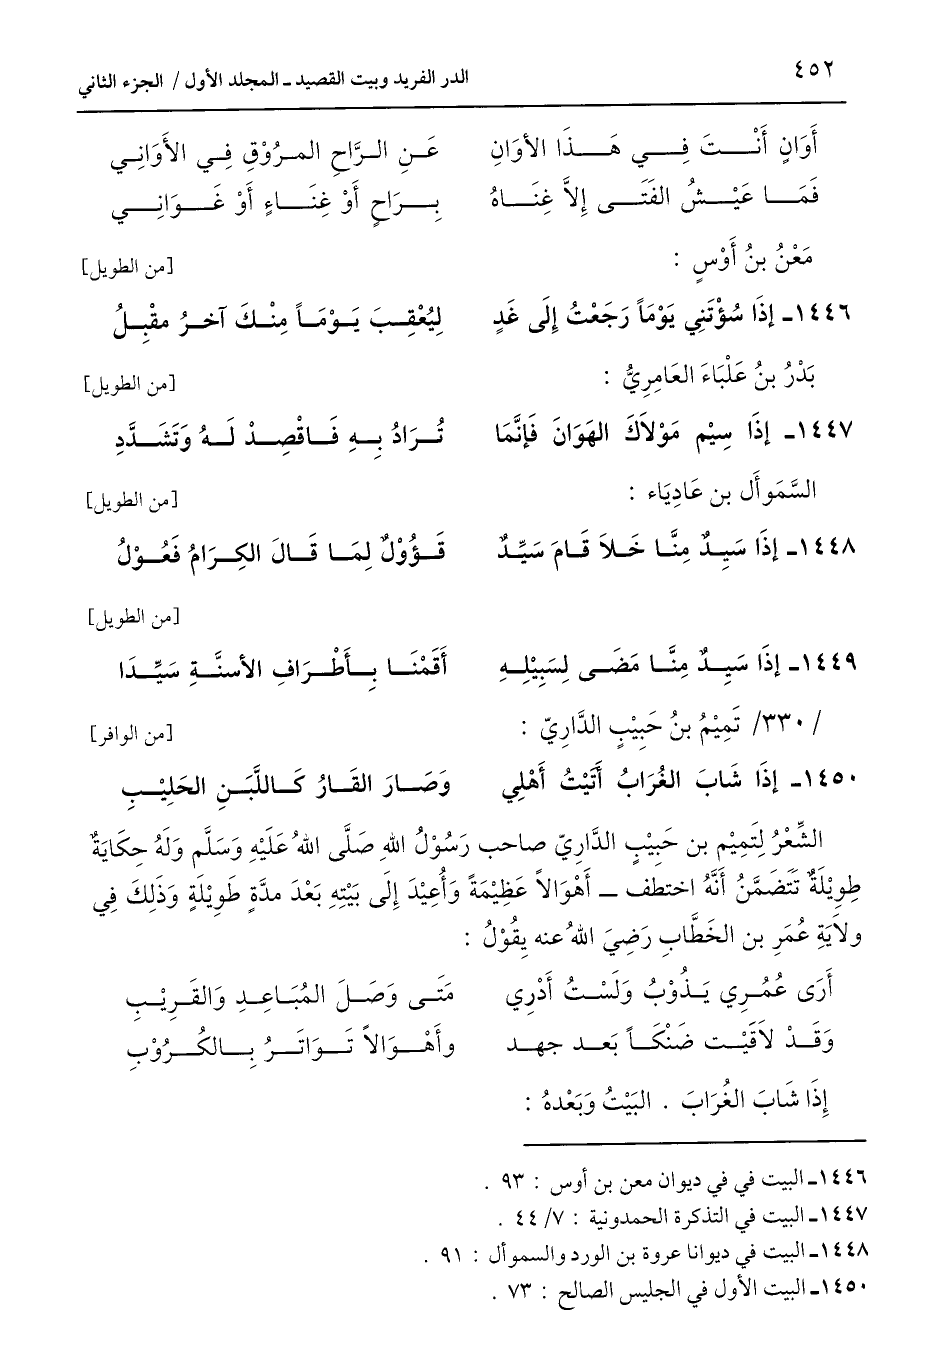 ٤٥٢ الدر الفريد وبيت القصيد ـ المجلد الأول / الجزء الثاني
أَوَانٍ أَنْتَ فِي هَذَا الأوَانِ عَنِ الرَّاحِ المرُوْقِ فِي الأَوَانِي
فَمَا عَيْشُ الفَتَى إلاَّ غِنَاهُ بِرَاحٍ أَوْ غِنَاءٍ أَوْ غَوَانِي
مَعْنُ بنُ أَوْسٍ : [من الطويل]
١٤٤٦ـ إذَا سُؤْتَنِي يَوْمَاً رَجَعْتُ إلَى غَدٍ لِيُعْقِبَ يَوْمَاً مِنْكَ آخرُ مقْبِلُ
بَدْرُ بنُ عَلْبَاءَ العَامِرِيُّ : [من الطويل]
١٤٤٧ـ إذَا سِيْم مَوْلاَكَ الهَوَانَ فَإنَّمَا تُرَادُ بِهِ فَاقْصِدْ لَهُ وَتَشَدَّدِ
السَّمَوأَل بن عَادِيَاء : [من الطويل]
١٤٤٨ـ إذَا سَيِدٌ مِنَّا خَلاَ قَامَ سَيِّدٌ قَؤُوْلٌ لِمَا قَالَ الكِرَامُ فَعُوْلُ
[من الطويل]
١٤٤٩ـ إذَا سَيِدٌ مِنَّا مَضَى لِسَبِيْلِهِ أَقَمْنَا بِأَطْرَافِ الأسنَّةِ سَيِّدَا
/ ٣٣٠/ تَمِيْمُ بنُ حَبِيْبٍ الدَّارِيّ : [من الوافر]
١٤٥٠ـ إذَا شَابَ الغُرَابُ أَتَيْتُ أَهْلِي وَصَارَ القَارُ كَاللَّبَنِ الحَلِيْبِ
الشِّعْرُ لِتَمِيْم بن حَبِيْبٍ الدَّارِيّ صاحب رَسُوْلُ اللهِ صَلَّى اللهُ عَلَيْهِ وَسَلَّم وَلَهُ حِكَايَةٌ
طِوِيْلَةٌ تَتَضَمَّنُ أَنَّهُ اختطف ـ أَهْوَالاً عَظِيْمَةً وَأُعِيْدَ إلَى بَيْتِهِ بَعْدَ مدَّةٍ طَوِيْلَةٍ وَذَلِكَ فِي
ولاَيَةِ عُمَر بن الخَطَّابِ رَضِيَ اللهُ عنه يقُوْلُ :
أَرَى عُمُرِي يَذُوْبُ وَلَسْتُ أَدْرِي مَتَى وَصَلَ المُبَاعِدِ وَالقَرِيْبِ
وَقَدْ لاَقَيْت ضَنْكَاً بَعد جهد وأَهْوَالاً تَوَاتَرُ بِالكُرُوْبِ
إذَا شَابَ الغُرَابَ . البَيْتُ وَبَعْدهُ :
١٤٤٦ـ البيت في في ديوان معن بن أوس : ٩٣ .
١٤٤٧ـ البيت في التذكرة الحمدونية : ٧/ ٤٤ .
١٤٤٨ـ البيت في ديوانا عروة بن الورد والسموأل : ٩١ .
١٤٥٠ـ البيت الأول في الجليس الصالح : ٧٣ .